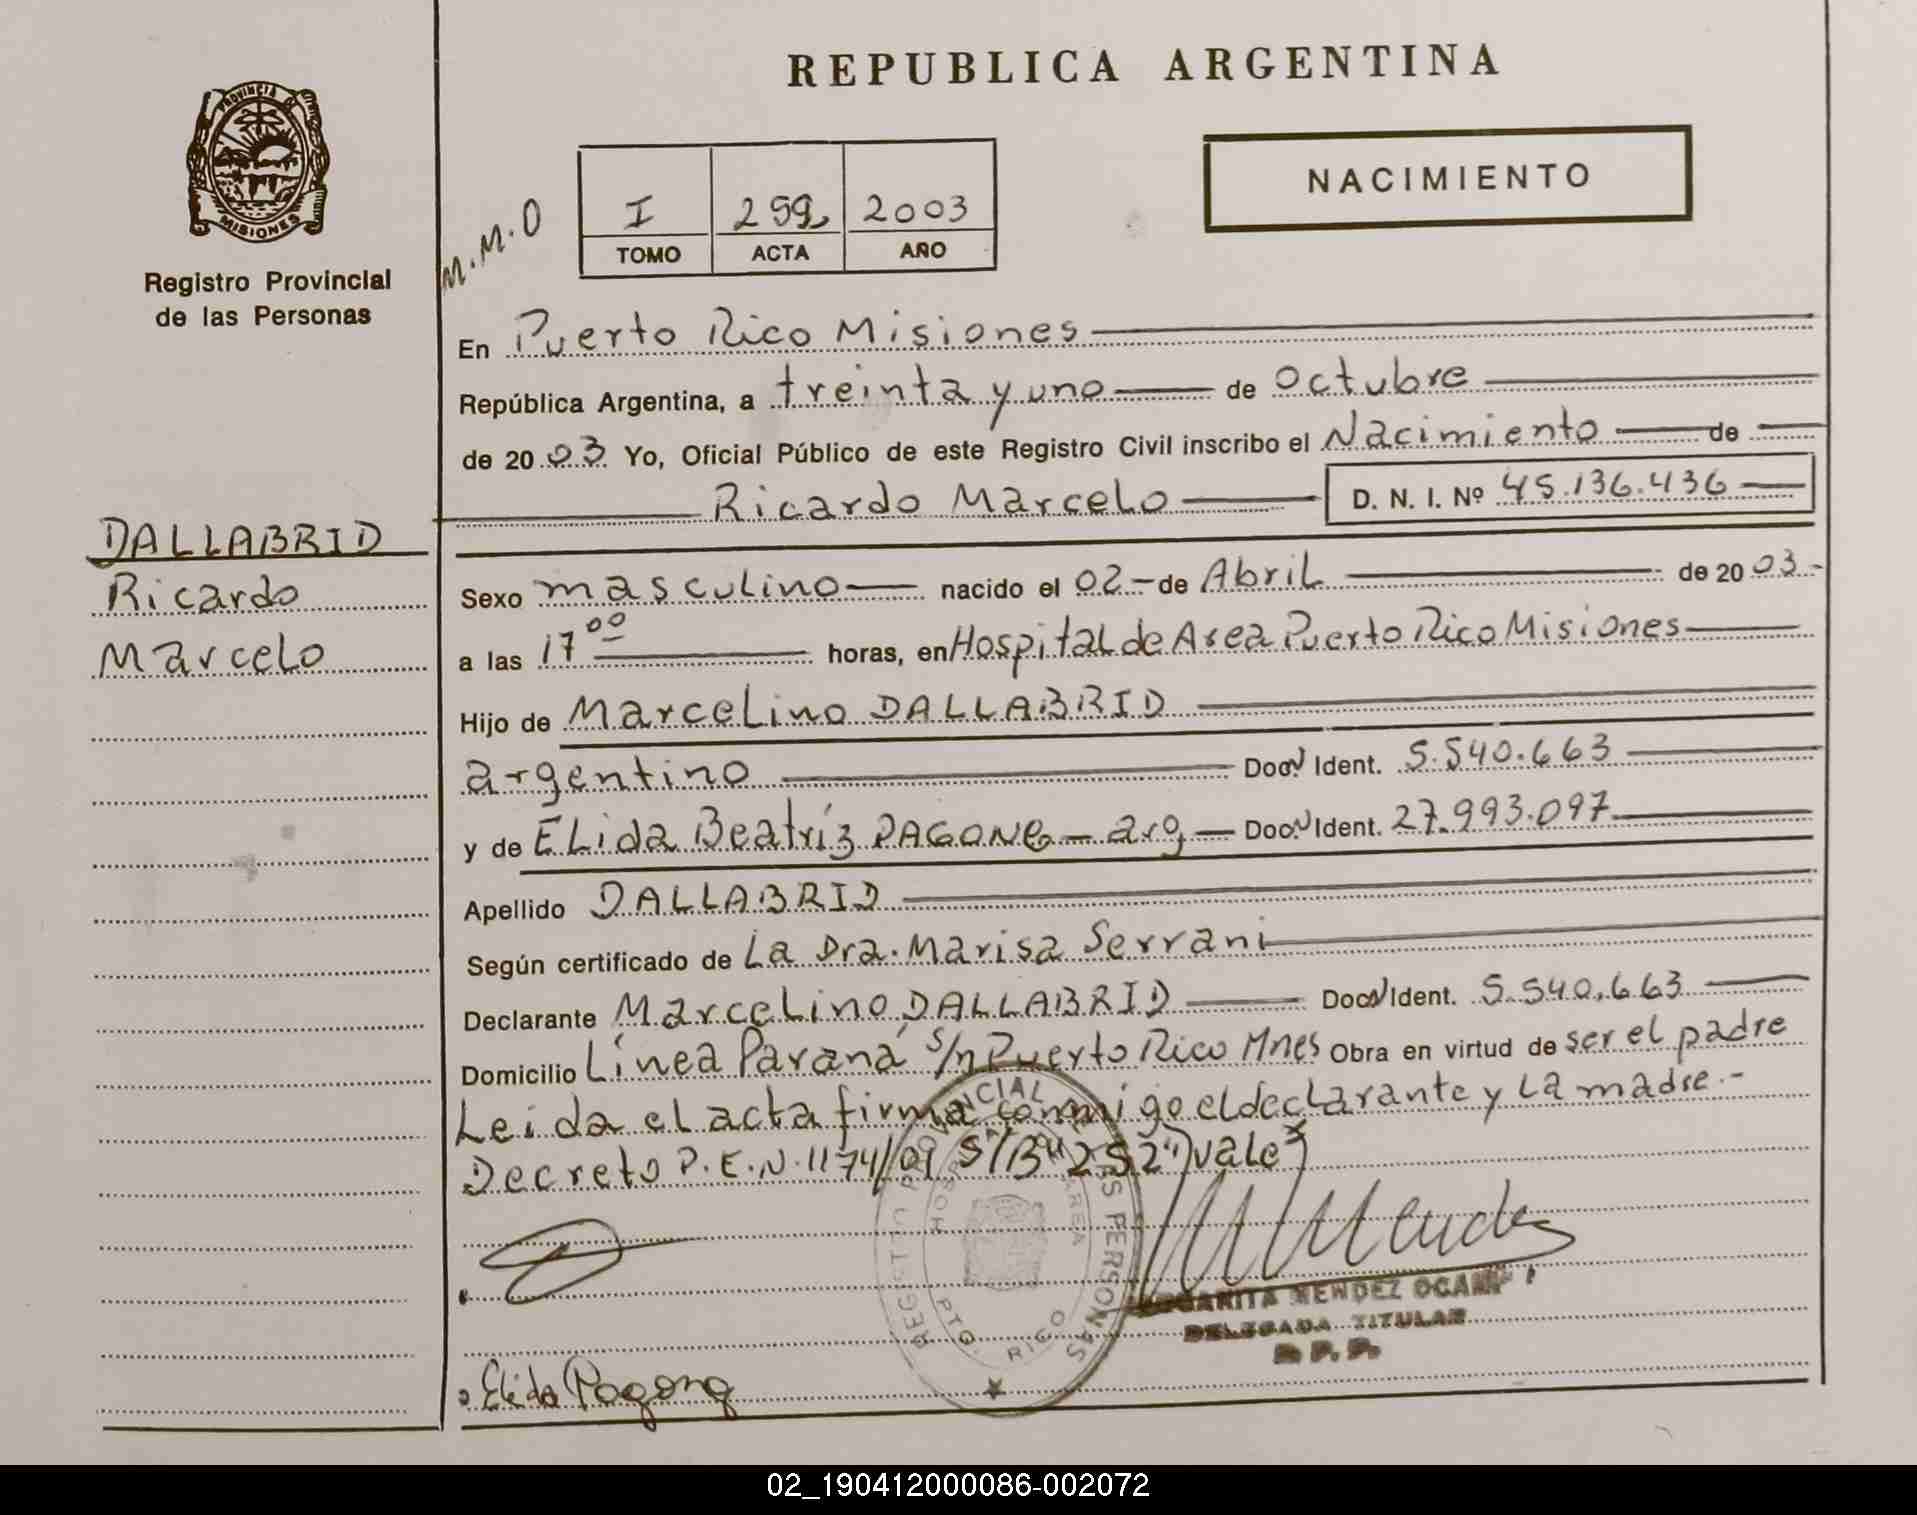 REPUBLICA ARGENTINA
PROVINCIA DE
MISIONES
Registro Provincial
de las Personas
NACIMIENTO
M.M.O
I 2003
TOMO ACTA AÑO
En Puerto Rico Misiones
República Argentina, a treinta y uno de Octubre
de 2003 Yo, Oficial Público de este Registro Civil inscribo el Nacimiento de
Ricardo Marcelo D. N. I. Nº 45.136.436
DALLABRID
Ricardo
Marcelo
Sexo masculino nacido el 02 - de Abril de 2003.-
a las 17 00 horas, en Hospital de Area Puerto Rico Misiones
Hijo de Marcelino DALLABRID
argentino Doc. Ident. 5.540.663
y de ELida Beatríz PAGONG - arg - Doc. Ident. 27.993.097
Apellido DALLABRID
Según certificado de La Dra. Marisa Serrani
Declarante Marcelino DALLABRID Doc. Ident. 5.540.663
Domicilio Línea Paraná s/n Puerto Rico Mnes Obra en virtud de ser el padre
Leida el acta firma conmigo el declarante y La madre.-
Decreto P.E.N. 1174/09 S/B "252") vale
REGISTRO PROVINCIAL DE LAS PERSONAS
HOSP. AREA
PTO. RICO
MARGARITA MENDEZ OCAMPO
DELEGADA TITULAR
R.P.P.
Elida Pagong
02_190412000086-002072